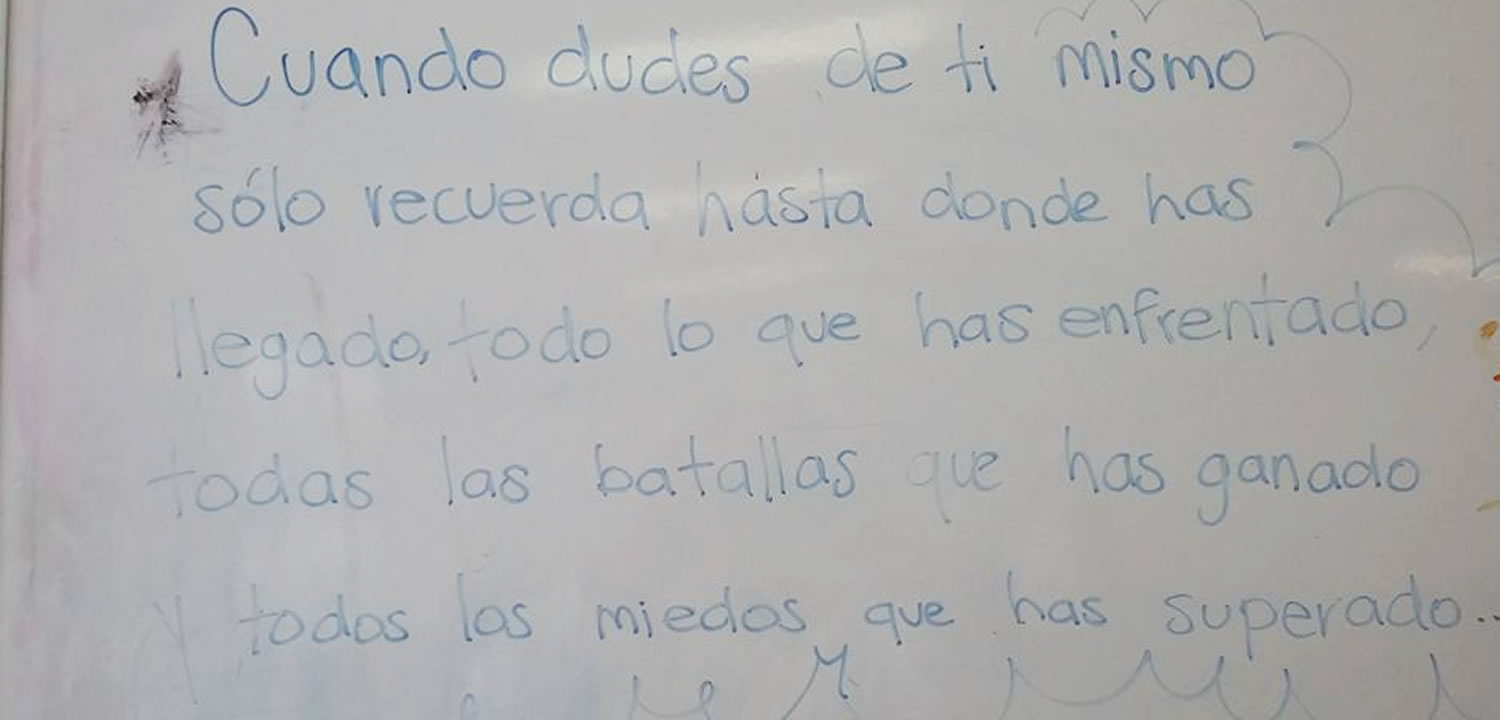 Cuando dudes de ti mismo
sólo recuerda hásta donde has
llegado, todo lo que has enfrentado,
todas las batallas que has ganado
y todos los miedos que has superado..